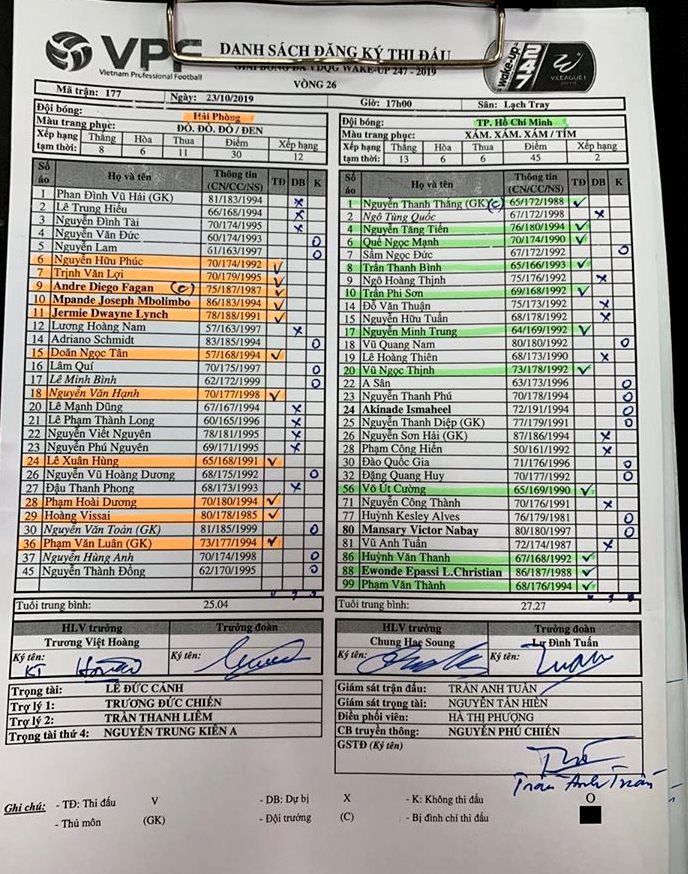 VPF
Vietnam Professional Football
DANH SÁCH ĐĂNG KÝ THI ĐẤU
GIẢI BÓNG ĐÁ VĐQG WAKE-UP 247 - 2019
WAKE-UP 247
V.LEAGUE 1
VÒNG 26
Mã trận: 177 Ngày: 23/10/2019 Giờ: 17h00 Sân: Lạch Tray
Đội bóng: Hải Phòng
Màu trang phục: ĐỎ. ĐỎ. ĐỎ / ĐEN
Xếp hạng tạm thời: Thắng Hòa Thua Điểm Xếp hạng
8 6 11 30 12
Số áo Họ và tên Thông tin (CN/CC/NS) TĐ DB K
1 Phan Đình Vũ Hải (GK) 81/183/1994 x
2 Lê Trung Hiếu 66/168/1994 x
3 Nguyễn Đình Tài 70/174/1995 x
4 Nguyễn Văn Đức 60/174/1993 O
5 Nguyễn Lam 61/163/1997 O
6 Nguyễn Hữu Phúc 70/174/1992 v
7 Trịnh Văn Lợi 70/179/1995 v
9 Andre Diego Fagan (c) 75/187/1987 v
10 Mpande Joseph Mbolimbo 86/183/1994 v
11 Jermie Dwayne Lynch 78/188/1991 v
12 Lương Hoàng Nam 57/163/1997 x
14 Adriano Schmidt 83/185/1994 O
15 Doãn Ngọc Tân 57/168/1994 v
16 Lâm Quí 70/175/1997 O
17 Lê Minh Bình 62/172/1999 O
18 Nguyễn Văn Hạnh 70/177/1998 v
20 Lê Mạnh Dũng 67/167/1994 x
21 Lê Phạm Thành Long 60/165/1996 x
22 Nguyễn Viết Nguyên 78/181/1995 x
23 Nguyễn Phú Nguyên 69/171/1995 x
24 Lê Xuân Hùng 65/168/1991 v
26 Nguyễn Vũ Hoàng Dương 68/175/1992 O
27 Đậu Thanh Phong 68/173/1993 x
28 Phạm Hoài Dương 70/180/1994 v
29 Hoàng Vissai 80/178/1985 v
30 Nguyễn Văn Toản (GK) 81/185/1999 O
36 Phạm Văn Luân (GK) 73/177/1994 v
37 Nguyễn Hùng Anh 70/174/1998 O
45 Nguyễn Thành Đồng 62/170/1995 O
Tuổi trung bình: 25.04
HLV trưởng Trưởng đoàn
Trương Việt Hoàng
Ký tên: Ký tên:
Trọng tài: LÊ ĐỨC CẢNH
Trợ lý 1: TRƯƠNG ĐỨC CHIẾN
Trợ lý 2: TRẦN THANH LIÊM
Trọng tài thứ 4: NGUYỄN TRUNG KIÊN A
Đội bóng: TP. Hồ Chí Minh
Màu trang phục: XÁM. XÁM. XÁM / TÍM
Xếp hạng tạm thời: Thắng Hòa Thua Điểm Xếp hạng
13 6 6 45 2
Số áo Họ và tên Thông tin (CN/CC/NS) TĐ DB K
1 Nguyễn Thanh Thắng (GK) (c) 65/172/1988 v
2 Ngô Tùng Quốc 67/172/1998 x
4 Nguyễn Tăng Tiến 76/180/1994 v
6 Quế Ngọc Mạnh 70/174/1990 v
7 Sầm Ngọc Đức 67/172/1992 O
8 Trần Thanh Bình 65/166/1993 v
9 Ngô Hoàng Thịnh 75/176/1992 x
10 Trần Phi Sơn 69/168/1992 v
14 Đỗ Văn Thuận 75/173/1992 x
15 Nguyễn Hữu Tuấn 68/178/1992 x
17 Nguyễn Minh Trung 64/169/1992 v
18 Vũ Quang Nam 80/180/1992 O
19 Lê Hoàng Thiên 68/173/1990 x
20 Vũ Ngọc Thịnh 73/178/1992 v
22 A Sân 63/173/1996 O
23 Nguyễn Thanh Phú 70/178/1994 O
24 Akinade Ismaheel 72/191/1994 O
25 Nguyễn Thanh Diệp (GK) 77/179/1991 O
26 Nguyễn Sơn Hải (GK) 87/186/1994 x
28 Phạm Công Hiển 50/161/1992 x
30 Đào Quốc Gia 71/176/1996 O
32 Đặng Quang Huy 70/177/1992 O
56 Võ Út Cường 65/169/1990 v
71 Nguyễn Công Thành 70/176/1991 x
77 Huỳnh Kesley Alves 76/179/1981 O
80 Mansary Victor Nabay 80/180/1997 O
81 Vũ Anh Tuấn 72/174/1987 x
86 Huỳnh Văn Thanh 67/168/1992 v
88 Ewonde Epassi L.Christian 86/187/1988 v
99 Phạm Văn Thành 68/176/1994 v
Tuổi trung bình: 27.27
HLV trưởng Trưởng đoàn
Chung Hae Soung Lư Đình Tuấn
Ký tên: Ký tên:
Giám sát trận đấu: TRẦN ANH TUẤN
Giám sát trọng tài: NGUYỄN TẤN HIỀN
Điều phối viên: HÀ THỊ PHƯỢNG
CB truyền thông: NGUYỄN PHÚ CHIẾN
GSTĐ (Ký tên)
Trần Anh Tuấn
Ghi chú: - TĐ: Thi đấu V - DB: Dự bị X - K: Không thi đấu O
- Thủ môn (GK) - Đội trưởng (C) - Bị đình chỉ thi đấu